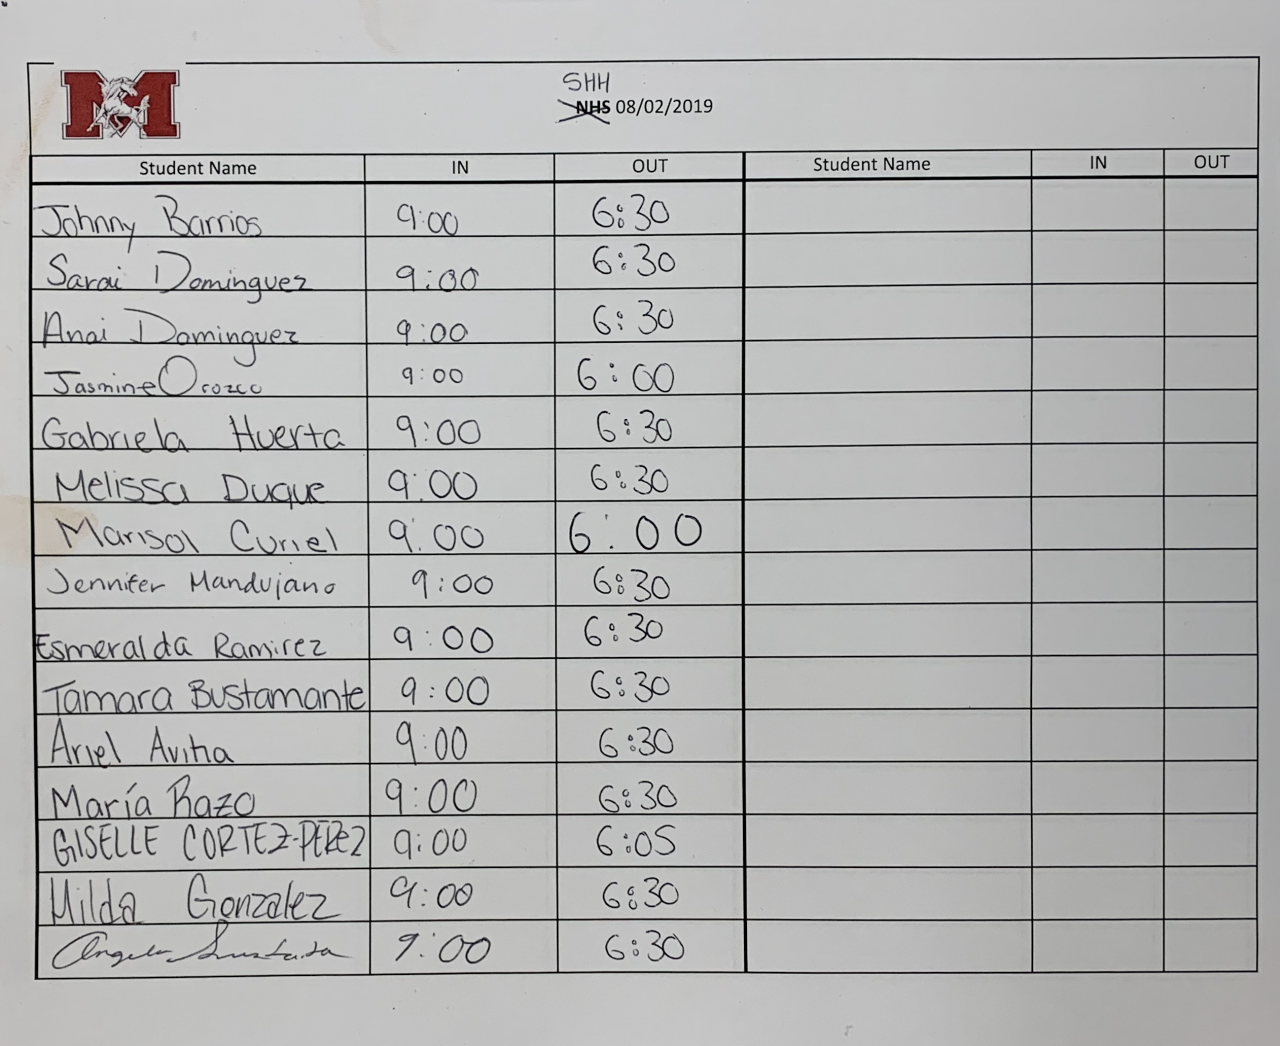 M
SHH
NHS 08/02/2019
Student Name IN OUT Student Name IN OUT
Johnny Barrios 9:00 6:30
Sarai Dominguez 9:00 6:30
Anai Dominguez 9:00 6:30
Jasmine Orozco 9:00 6:00
Gabriela Huerta 9:00 6:30
Melissa Duque 9:00 6:30
Marisol Curiel 9:00 6:00
Jennifer Mandujano 9:00 6:30
Esmeralda Ramirez 9:00 6:30
Tamara Bustamante 9:00 6:30
Ariel Aviña 9:00 6:30
María Razo 9:00 6:30
GISELLE CORTEZ-PEREZ 9:00 6:05
Milda Gonzalez 9:00 6:30
Angela 9:00 6:30